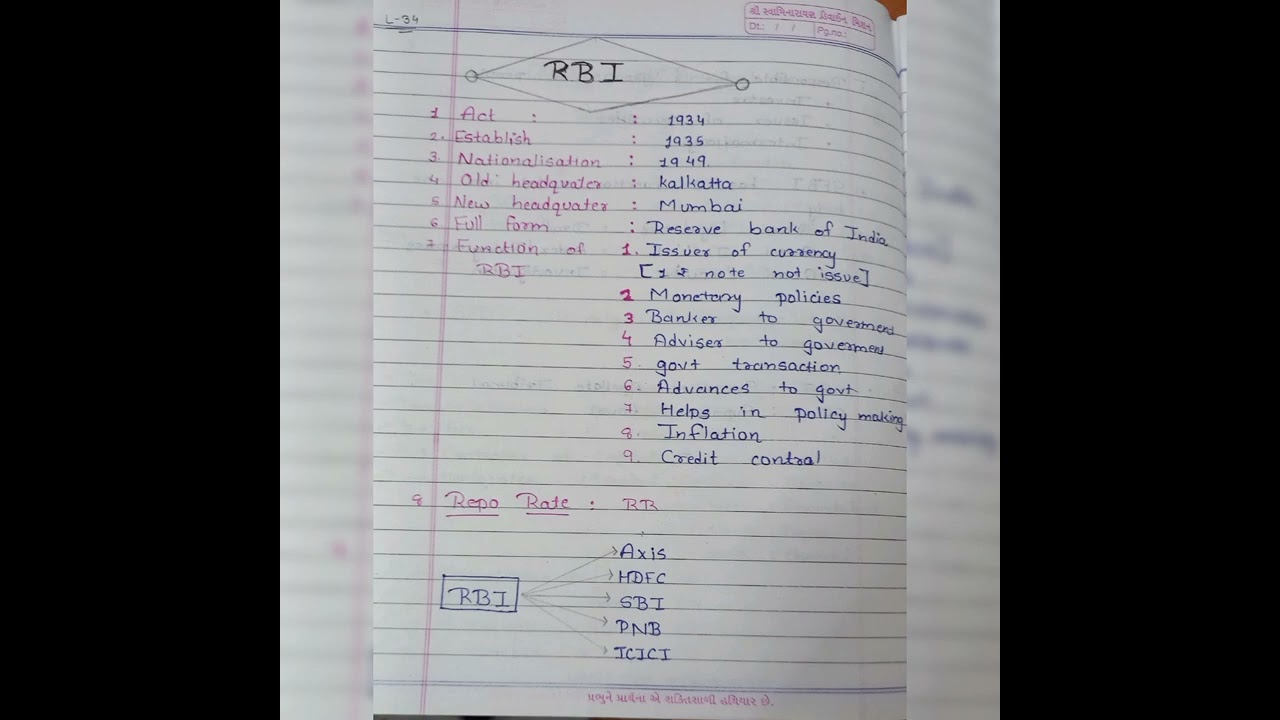 L-34
શ્રી સ્વામિનારાયણ ડિવાઈન મિશન
Dt.: / / Pg.no.:
RBI
1 Act : : 1934
2. Establish : 1935
3. Nationalisation : 1949.
4 Old headquater : kalkatta
5 New headquater : Mumbai
6 Full form : Reserve bank of India
7 Function of 1. Issuer of currency
RBI [1 ₹ note not issue]
2 Monetary policies
3 Banker to goverment
4 Adviser to goverment
5. govt transaction
6. Advances to govt
7. Helps in policy making
8. Inflation
9. Credit contral
8 Repo Rate : RR
Axis
HDFC
RBI SBI
PNB
ICICI
પ્રભુને પ્રાર્થના એ શક્તિશાળી હથિયાર છે.